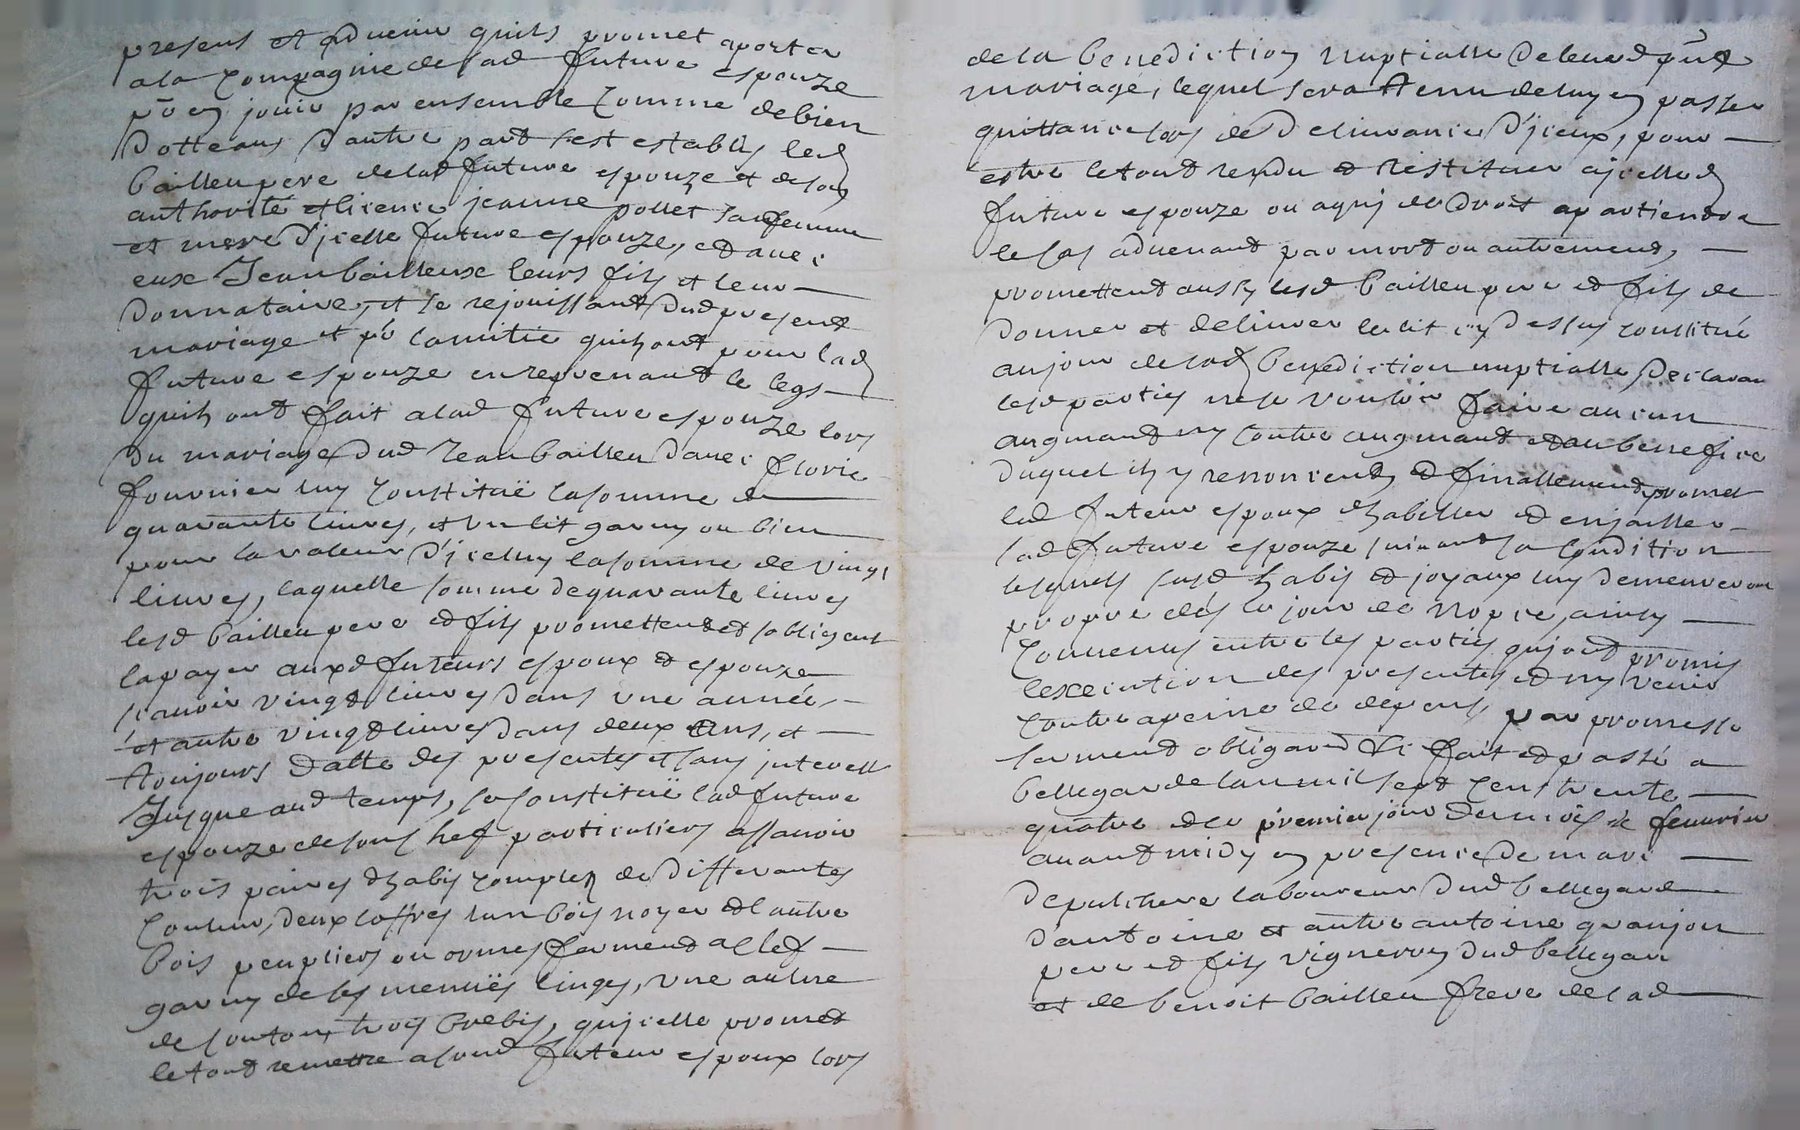 presens et advenir quils promet aporter
a la Compagnie de lad future espouze
po en jouir par ensemble Comme de bien
Dotteaux Dautre part sest establis led
bailleu pere de lad future espouze et de son
authorité et licence jeanne pollet sa femme
et mere d'jcelle future espouze, et avec
eux Jean bailleux leurs fils et leur
Donnataire, et se rejouissant Dud present
mariage et po lamitié quils ont pour lad
future espouze en reprenant le legs
quils ont fait a lad future espouze lors
Du mariage Dud Jean bailleu Davec florie
fournier luy Constituë la somme de
quarante livres, et un lit garny ou bien
pour la valeur D'jceluy la somme de vingt
livres, laquelle somme de quarante livres
lesd bailleu pere et fils promettent et sobligent
la payer auxd futeurs espoux et espouze
scavoir vingt livres Dans une année,
et autre vingt livres Dans deux ans, et
toujours Datte des presentes et sans jnterest
Jusque aud temps, se Constituë lad future
espouze de son chef particuliers assavoir
trois paires dhabis Complet de Differantes
Couleur, deux Coffres lun bois noyer et lautre
bois peupliers ou ormes fermant a clef
garny de ses menuës linges, une aulne
de , trois brebis, qujcelle promet
le tout remettre a soud futeur espoux lors
de la benediction Nuptialle De leurd pnt
mariage, lequel sera tenu de luy en passer
quittance lors de Delivrance D'jceux, pour
estre le tout rendu et restituer a jcelle d
future espouze ou a quj de Droit apartiendra
le cas advenant par mort ou autrement,
promettent aussy lesd bailleu pere et fils de
Donner et delivrer le lit cy Dessus constitué
au jour de lad benediction nuptialle, Declarant
lesd parties ne se vouloir faire aucun
augmant ny Contre augmant et au benefice
Duquel ils y renoncent, et finallement promet
led futeur espoux dhabiller et enjoailler
lad future espouze suivant sa Condition
lesquels susd habis et joyaux luy demeureront
propre dés le jour de Nopce, ainsy
Convenus entre les parties quj ont promis
lexecution des presentes et ny venir
Contre a peine de depens par promesse
serment obligaon &c fait et passé a
bellegarde lan mil sept Cens trente
quatre et le premier jour Du mois de fevrier
avant midy en presence de marc
Depulchere laboureur Dud bellegarde
D'antoine et autre antoine granjon
pere et fils vignerons Dud bellegarde
et de benoit bailleu frere de lad